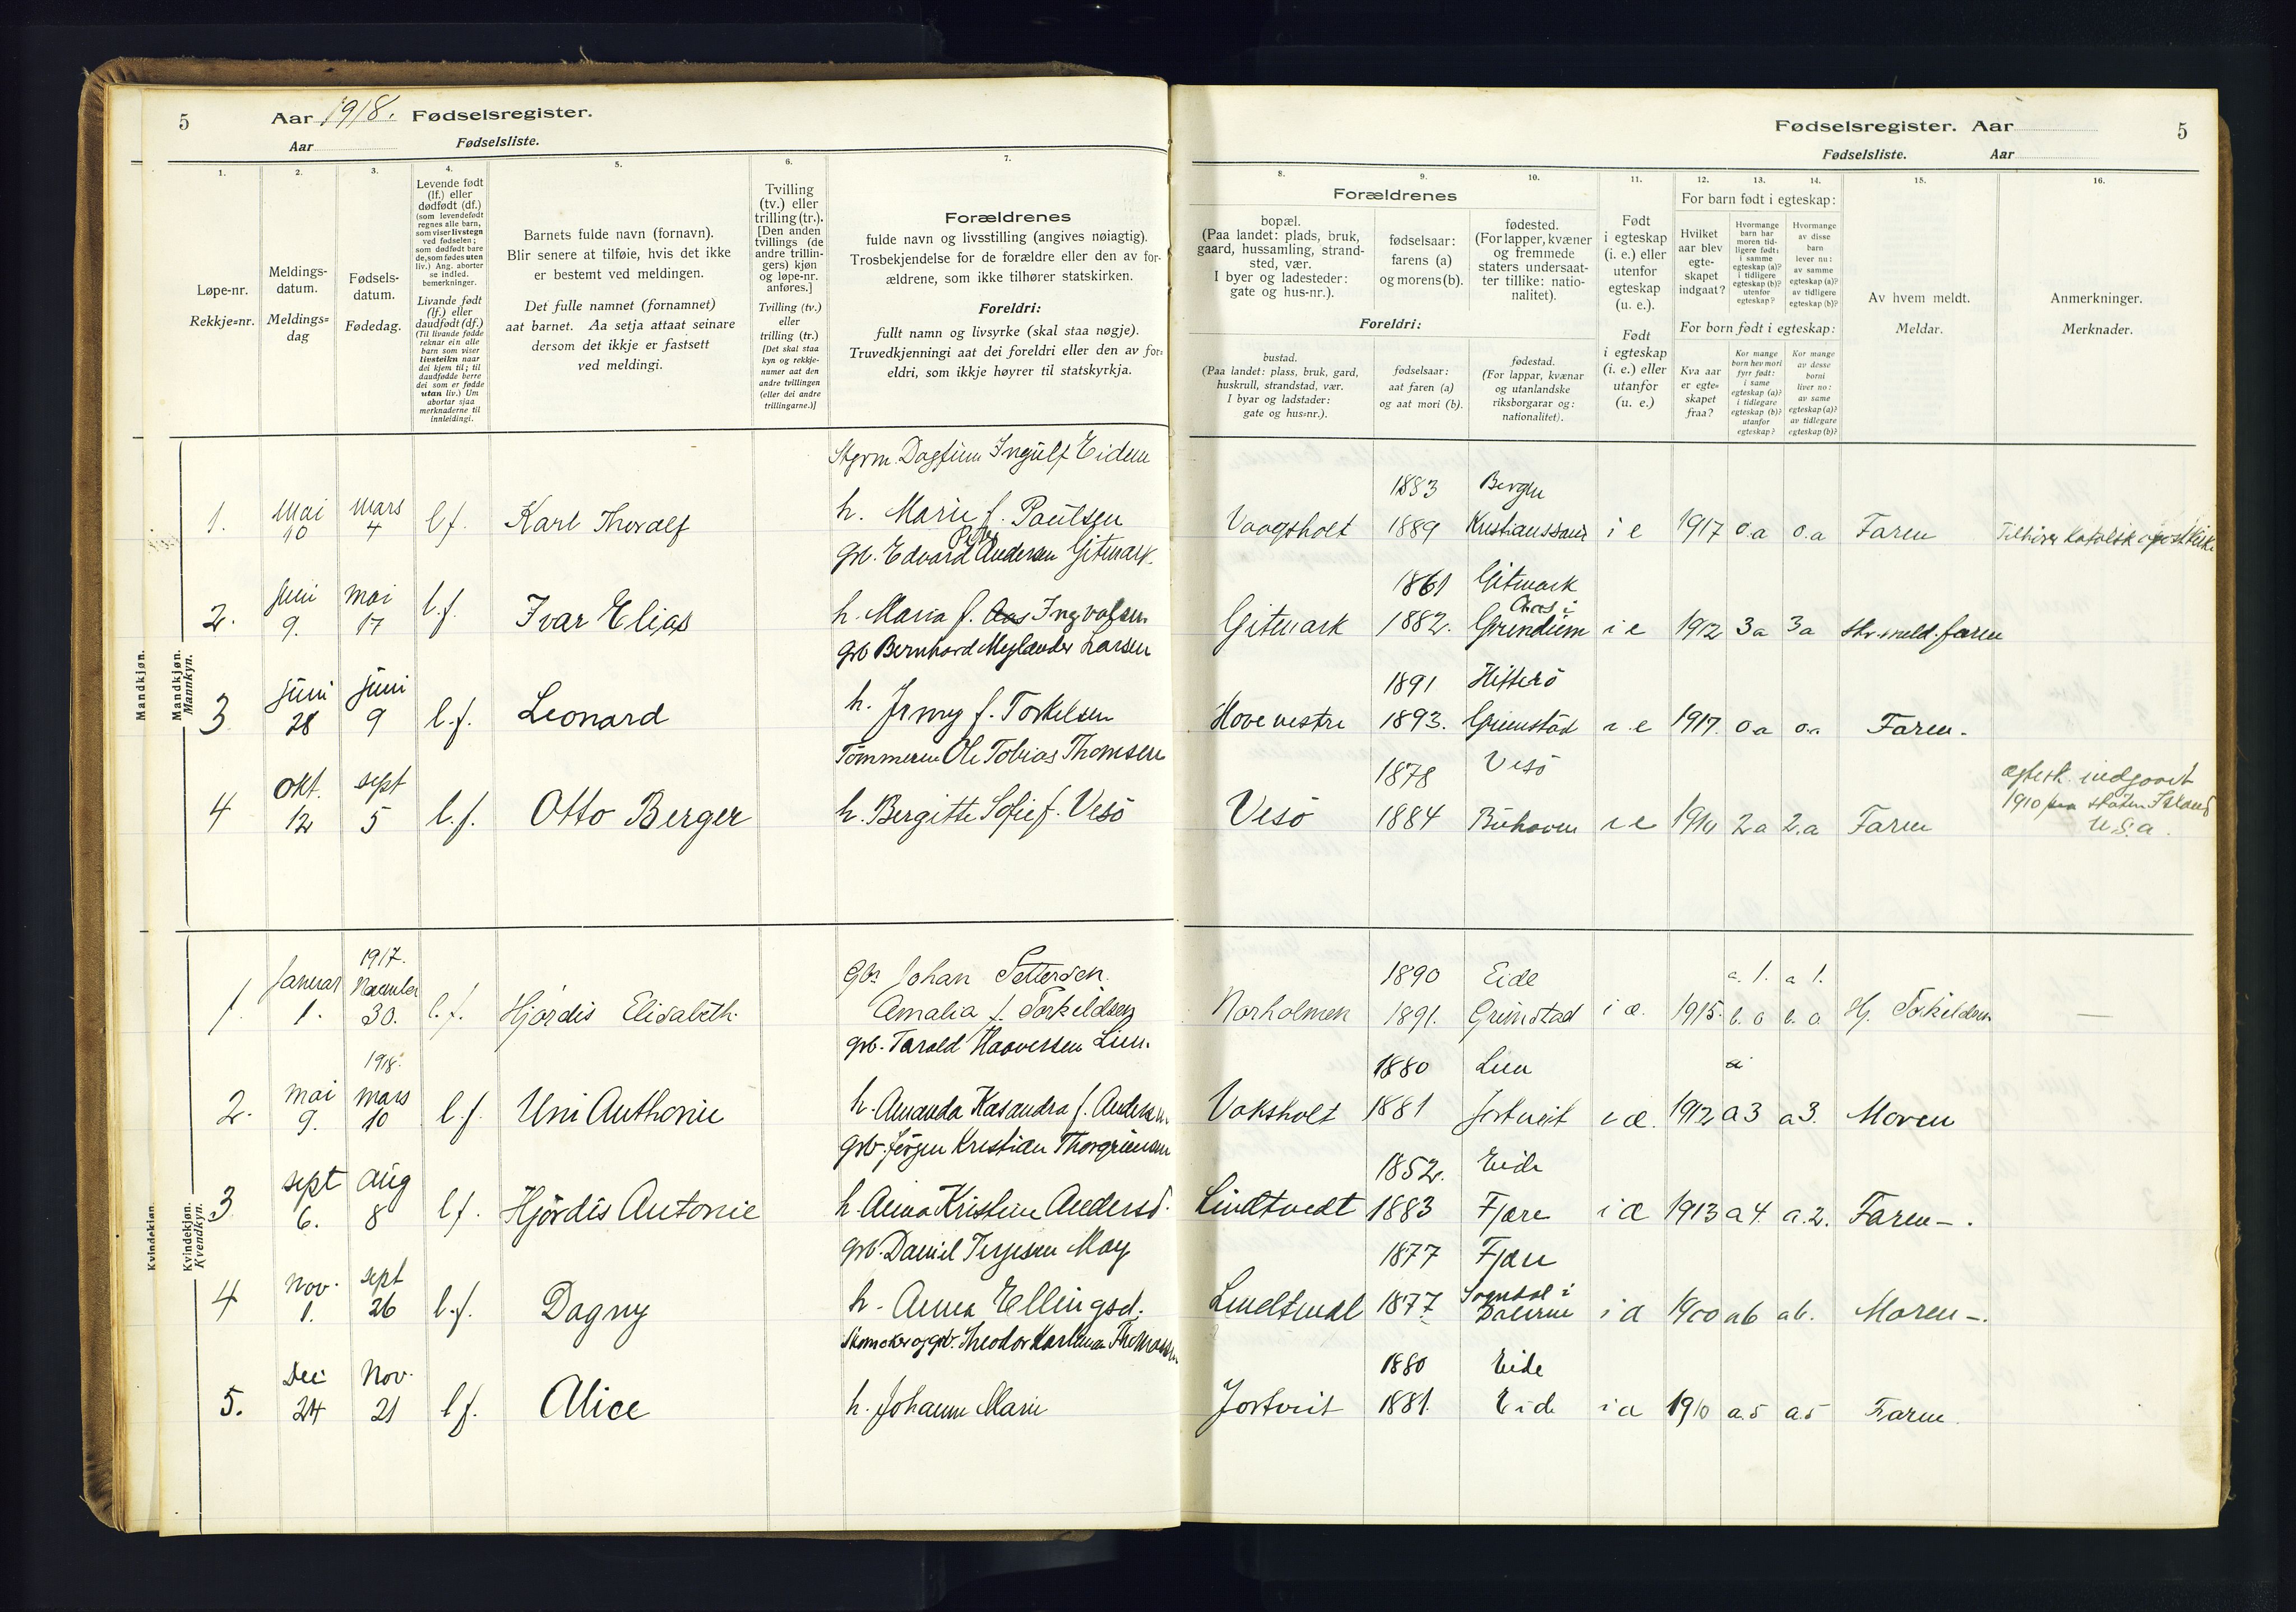 5
Aar 1918. Fødselsregister.
Aar Fødselsliste.
Fødselsregister. Aar
5
Fødselsliste. Aar
1.
Løpe-nr.
Rekkje=nr.
2.
Meldings-
datum.
Meldings=
dag
3.
Fødsels-
datum.
Fødedag.
4.
Levende født
(lf.) eller
dødfødt (df.)
(som levendefødt
regnes alle barn,
som viser livstegn
ved fødselen;
som dødfødt bare
de, som fødes uten
liv.) Ang. aborter
se indled.
bemerkninger.
Livande født
(lf.) eller
daudfødt (df.)
(Til livande fødde
reknar ein alle
barn som viser
livsteikn naar
dei kjem til; til
daudfødde berre
dei som er fødde
utan liv.) Um
abortar sjaa
merknaderne til
innleidingi.
5.
Barnets fulde navn (fornavn).
Blir senere at tilføie, hvis det ikke
er bestemt ved meldingen.
Det fulle namnet (fornamnet)
aat barnet. Aa setja attaat seinare
dersom det ikkje er fastsett
ved meldingi.
6.
Tvilling
(tv.) eller
trilling (tr.).
[Den anden
tvillings (de
andre trillin-
gers) kjøn
og løpe-nr.
anføres.]
Tvilling (tv.)
eller
trilling (tr.)
[Det skal staa
kyn og rekkje-
numer aat den
andre tvillingen
(eller dei andre
trillingarne.)]
7.
Forældrenes
fulde navn og livsstilling (angives nøiagtig).
Trosbekjendelse for de forældre eller den av for-
ældrene, som ikke tilhører statskirken.
Foreldri:
fullt namn og livsyrke (skal staa nøgje).
Truvedkjenningi aat dei foreldri eller den av for-
eldri, som ikkje høyrer til statskyrkja.
8.
Forældrenes
bopæl.
(Paa landet: plads, bruk,
gaard, hussamling, strand-
sted, vær.
I byer og ladesteder:
gate og hus-nr.).
Foreldri:
bustad.
(Paa landet: plass, bruk, gard,
huskrull, strandstad, vær.
I byar og ladstader:
gate og hus=nr.).
9.
fødselsaar:
farens (a)
og morens (b).
fødselsaar:
aat faren (a)
og aat mori (b).
10.
fødested.
(For lapper, kvæner
og fremmede
staters undersaat-
ter tillike: natio-
nalitet).
fødestad.
(For lappar, kvænar
og utanlandske
riksborgarar og:
nationalitet).
11.
Født
i egteskap
(i. e.) eller
utenfor
egteskap
(u. e.).
Født
i egteskap
(i. e.) eller
utanfor
(u. e.)
12.
For barn født i egteskap:
Hvilket
aar blev
egte-
skapet
indgaat?
For born født i egteskap:
Kva aar
er egte=
skapet
fraa?
13.
Hvormange
barn har
moren tid-
ligere født:
i samme
egteskap (a)?
i tidligere
egteskap (b)?
utenfor
egteskap?
Kor mange
born hev mori
fyrr født:
i same
egteskap (a)?
i tidlegare
egteskap (b)?
utanfor
egteskap?
14.
Hvormange
av disse
barn
lever nu:
av samme
egteskap (a)?
av tidligere
egteskap (b)?
Kor mange
av desse
borni
liver no:
av same
egteskap (a)?
av tidlegare
egteskap (b)?
15.
Av hvem meldt.
Meldar.
16.
Anmerkninger.
Merknader.
Mandkjøn.
Mandkjøn.
Mannkyn.
Dagfinn Ingulf Eidem
1883 Bergen
1. Mai 10 Mars 4 l f. Karl Thoralf h. Marie f. Paulsen Vaagsholt 1889 Kristianssand i e 1917 0.a 0.a Faren Tilhører Katolsk apost Kirke
Peter
Grb. Edvard Andersen Gitmark.
1861 Gitmark
Aas i
2. Juni 9. Mai 17 l.f. Ivar Elias h. Maria f. Aas Ingvalsen Gitmark 1882. Grindum i e 1912 3a 3a skr. meld. faren
Grb Bernhard Meylander Larsen
1891 Hitterö
3 Juni 28 Juni 9 l.f. Leonard h. Jenny f. Torkelsen Hove vestre 1893. Grimstad i e 1917. 0a 0.a Faren.
Tömmerm Ole Tobias Thomsen
1878 Vesö
4 Okt. 12 sept 5 l.f. Otto Berger h. Bergitte Sofie f. Vesö Vesö 1884 i e 1910 2a 2.a Faren
egtesk. indgaaet
1910 paa Staten Island
U.S.a.
Kvindekjøn.
Kvindekjøn.
Kvendkyn.
1917.
Gbr Johan Pettersen 1890 Eide a. 1. a 1.
1. Januar 1. November 30. l.f. Hjördis Elisabeth. Amalia f. Torkildsen Norholmen 1891. Grimstad i æ. 1915. b. o b. o Hj. Torkildsen —
Grb. Tarald Haavorsen Lien.
1918. 1880 Lien
2. Mai 9. Mars 10 l.f. Uni Anthonie h. Amanda Kasandra f. Andersen Voksholt 1881 Jortveit i æ. 1912 a 3 a 3. Moren
Grb. Jörgen Kristian Thorgrimsen
1852. Eide
3 sept 6. Aug 8 l f. Hjördis Antonie h. Anna Kristine Andersd. Lindtvedt 1883 Fjære i æ 1913 a 4. a. 2. Faren–.
Grb. Daniel Terjesen Moy
1877 Fjære
4 Nov. 1. sept 26 l.f. Dagny h. Anna Ellingsd. 1877. Sogndal i Dalerne i æ 1900 a6 a6. Moren–.
Skomaker og gbr. Theodor Karluman Thomassen
1880 Eide
5. Des 24 Nov. 21 l f. Alice h. Johanne Marie Jortveit 1881. Eide i æ 1910 a. 5 a.5 Faren.